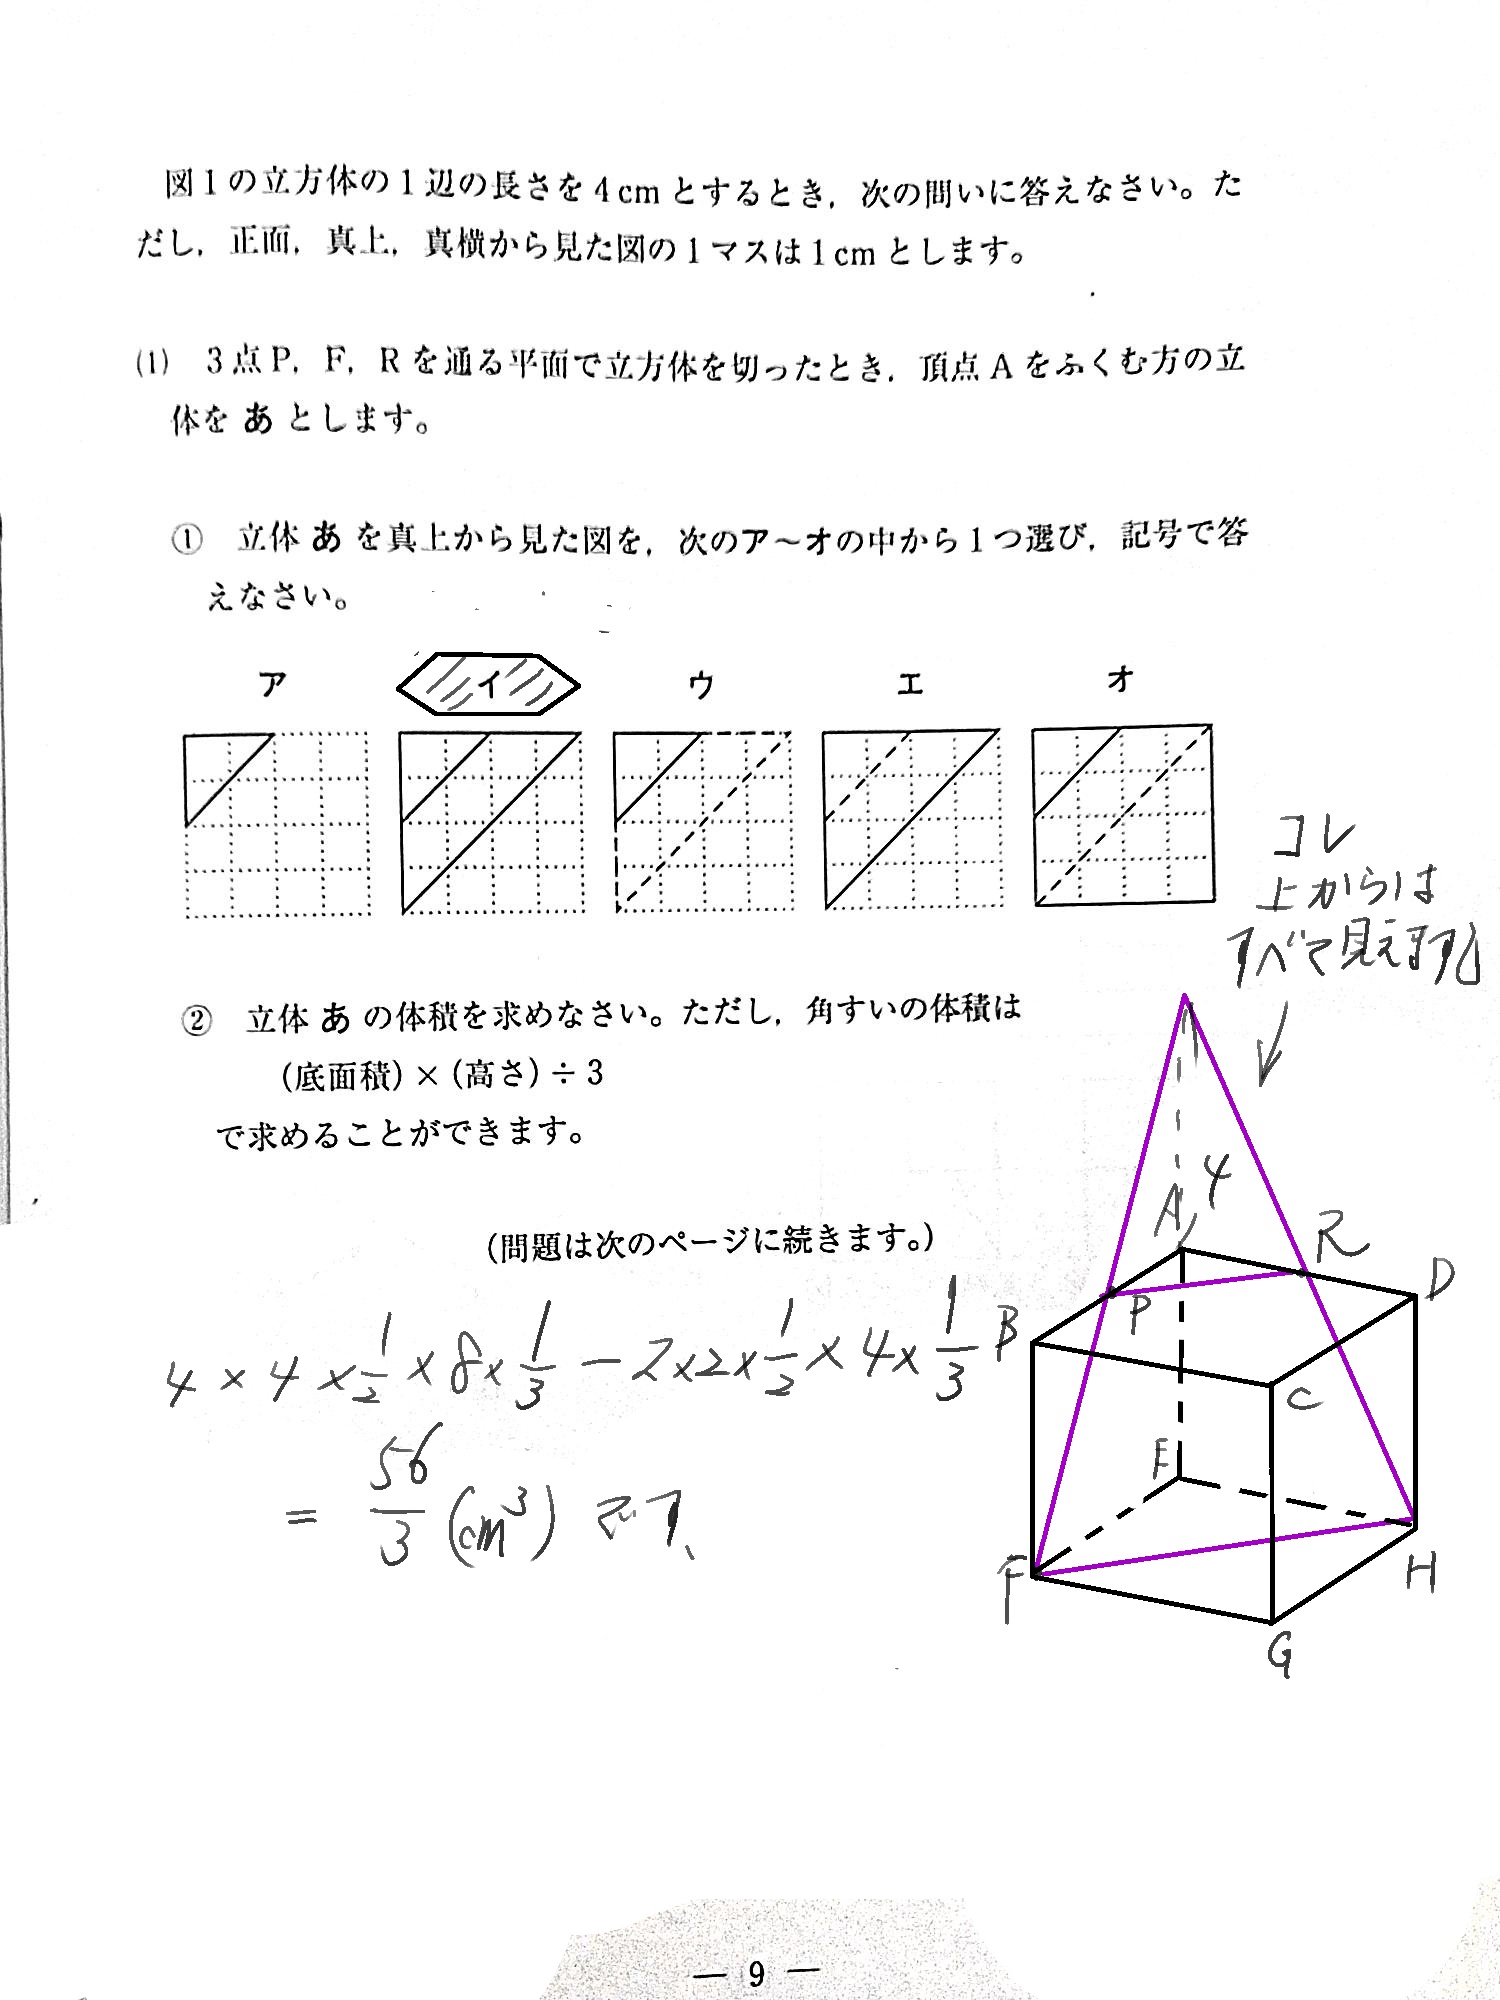 図1の立方体の1辺の長さを4cmとするとき，次の問いに答えなさい。た
だし，正面，真上，真横から見た図の1マスは1cmとします。
(1) 3点P，F，Rを通る平面で立方体を切ったとき，頂点Aをふくむ方の立
体を あ とします。
① 立体 あ を真上から見た図を，次のア～オの中から1つ選び，記号で答
えなさい。
ア イ ウ エ オ
コレ
上からは
すべて見えます
② 立体 あ の体積を求めなさい。ただし，角すいの体積は
(底面積)×(高さ)÷3
で求めることができます。
(問題は次のページに続きます。)
4×4×1/2×8×1/3－2×2×1/2×4×1/3
= 56/3 (cm³) です、
4
A
R
D
P
B
C
E
F
H
G
— 9 —